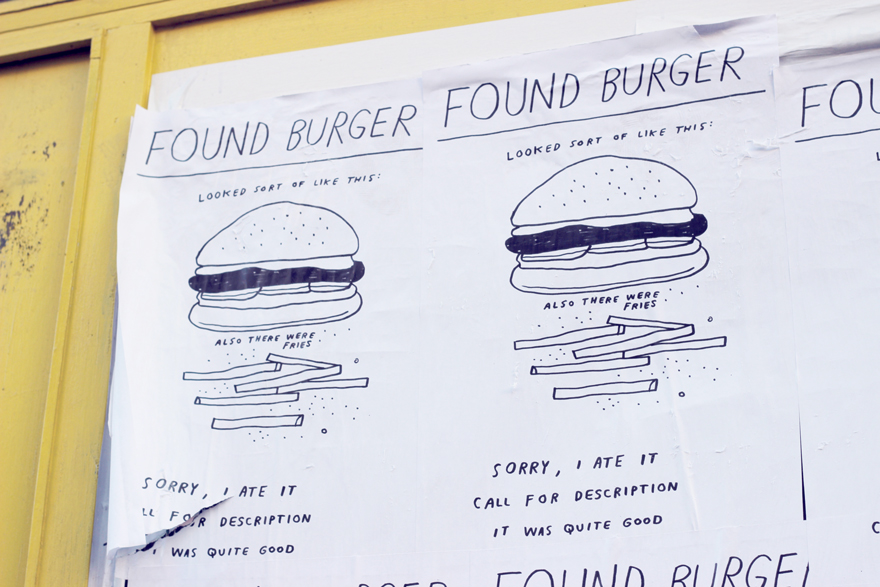 FOUND BURGER
LOOKED SORT OF LIKE THIS:
ALSO THERE WERE
FRIES
SORRY, I ATE IT
CALL FOR DESCRIPTION
IT WAS QUITE GOOD
FOUND BURGER
LOOKED SORT OF LIKE THIS:
ALSO THERE WERE
FRIES
SORRY, I ATE IT
LL FOR DESCRIPTION
WAS QUITE GOOD
FOU
FOUND BURGE